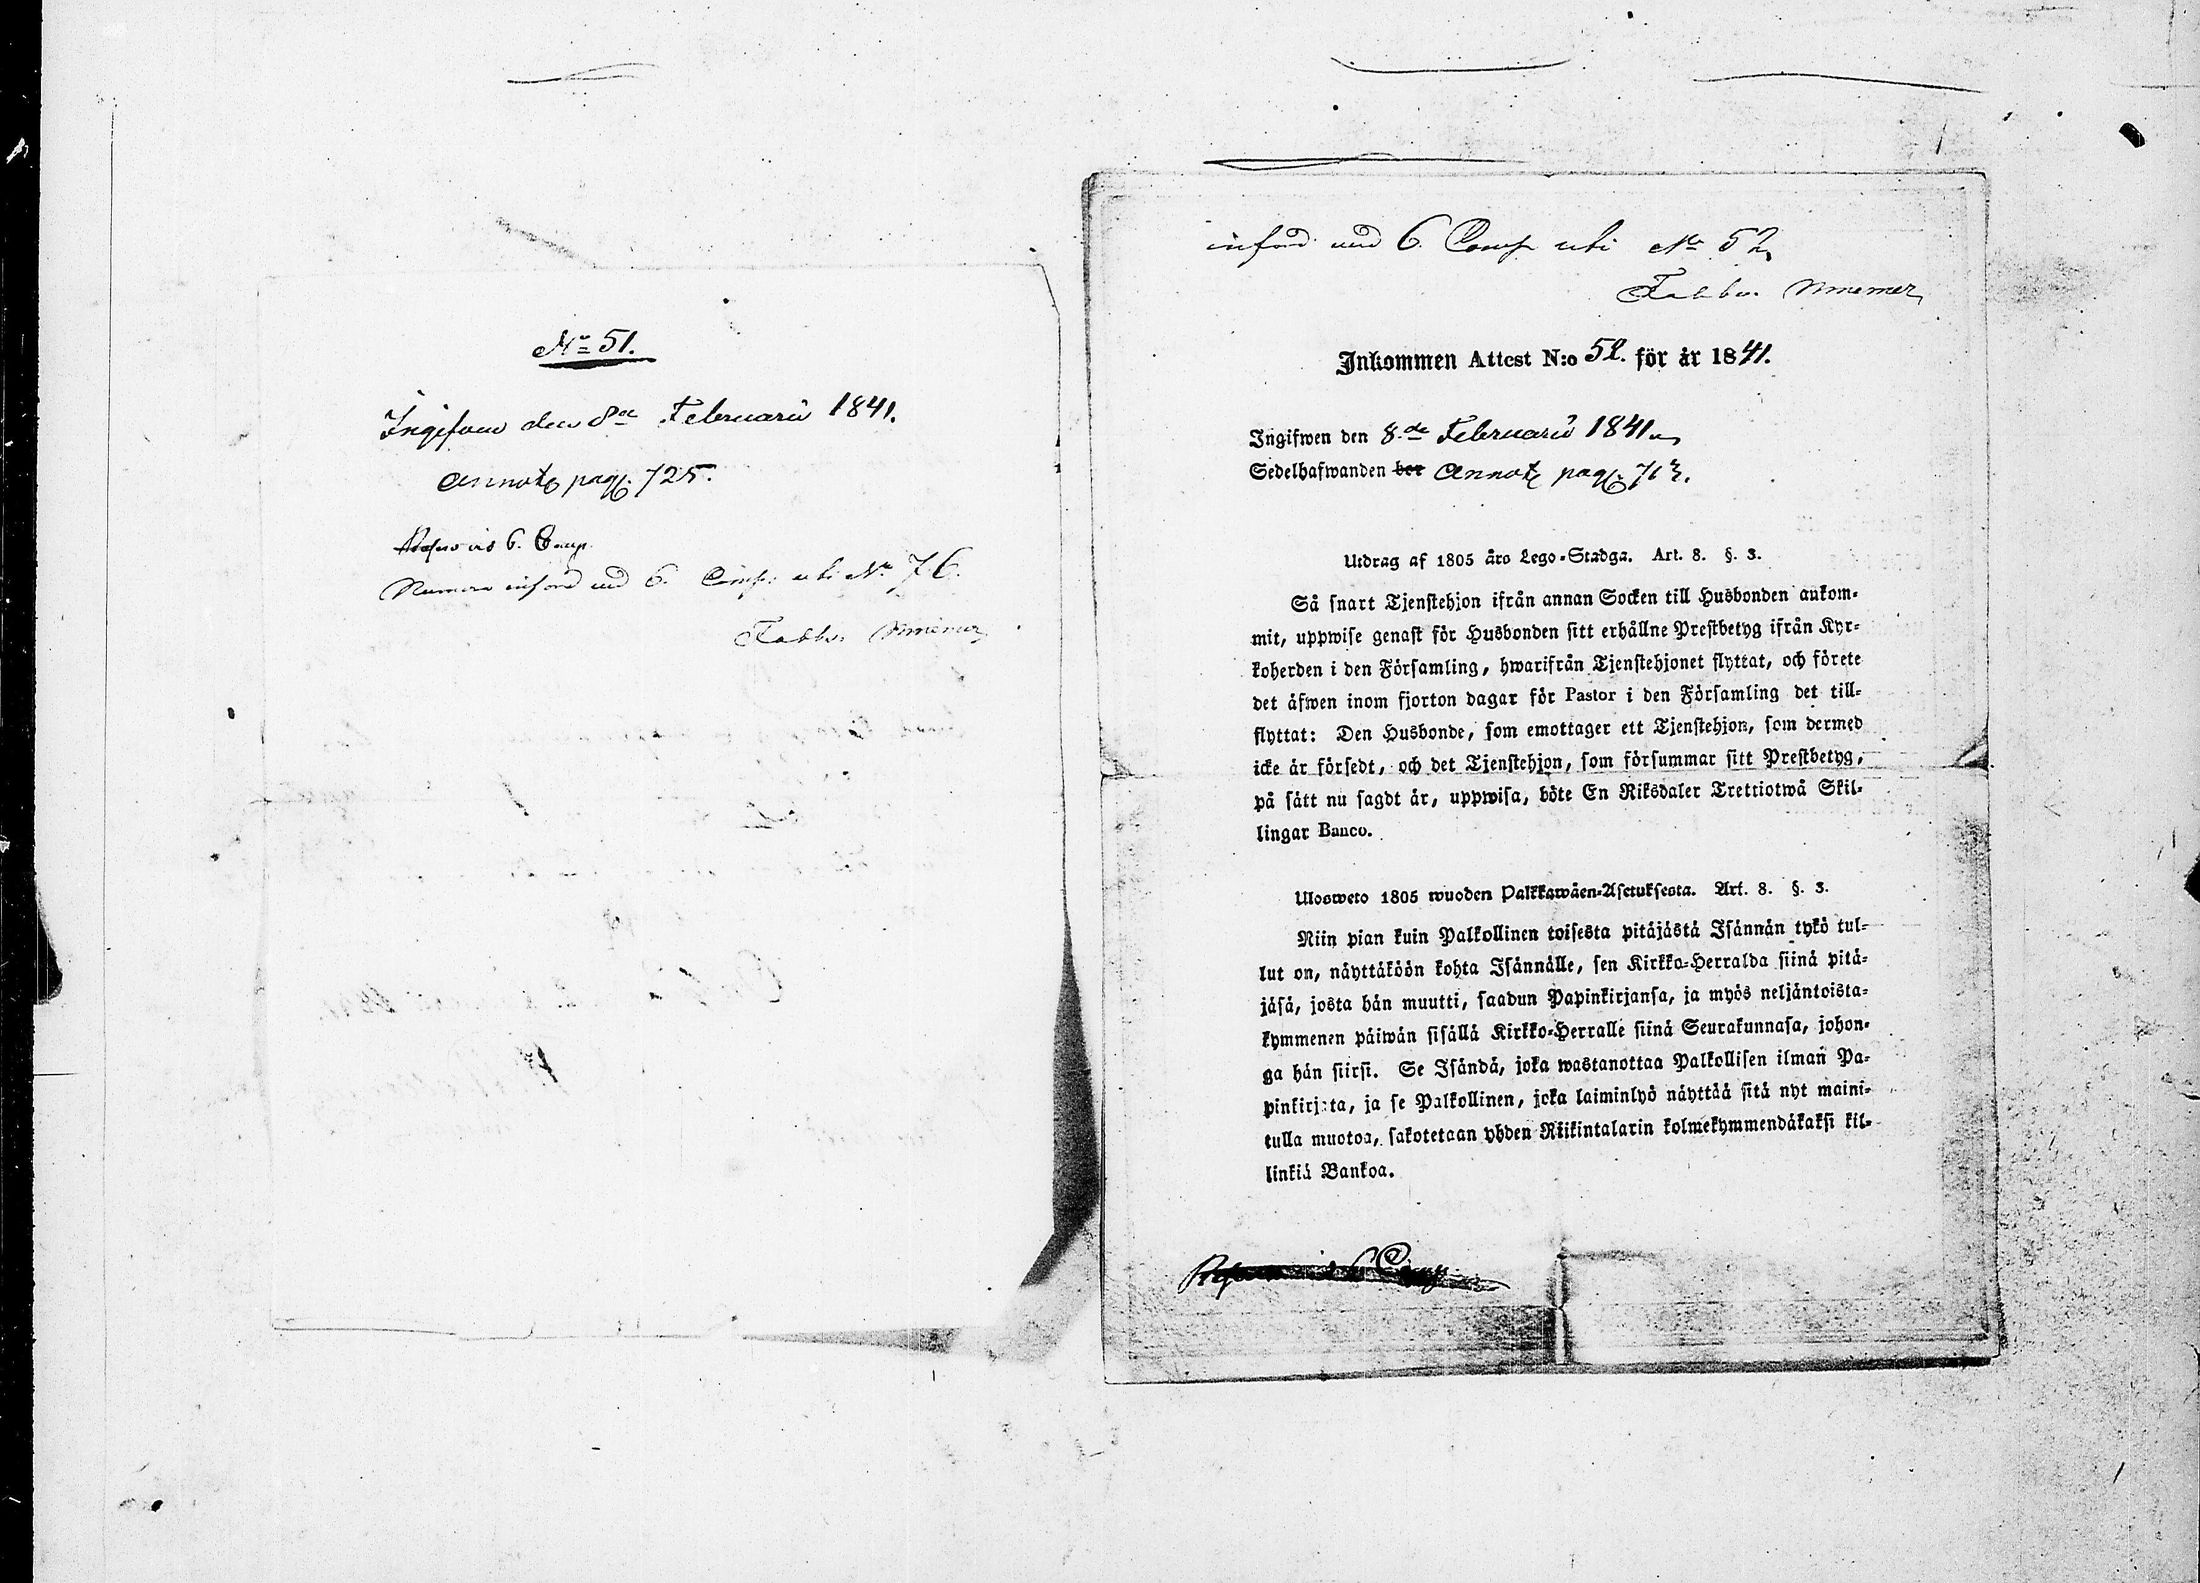 No 51.
Ingifven den 8de Februarii 1841.
Annot. pag. 725.
6. Comp.
6. Comp. ubi No 76.
6. Comp ubi No 52
Inkommen Attest N:o 52. för år 1841.
Ingifwen den 8.de Februarii 1841.
Sedelhafwanden bor Annot. pag. 713.
Utdrag af 1805 års Lego-Stadga. Art. 8. §. 3.
Så snart Tjenstehjon ifrån annan Socken till Husbonden ankom-
mit, uppwise genast för Husbonden sitt erhållne Prestbetyg ifrån Kyr-
koherden i den Församling, hwarifrån Tjenstehjonet flyttat, och förete
det äfwen inom fjorton dagar för Pastor i den Församling det till-
flyttat: Den Husbonde, som emottager ett Tjenstehjon, som dermed
icke är försedt, och det Tjenstehjon, som försummar sitt Prestbetyg,
på sätt nu sagdt är, uppwisa, böte En Riksdaler Trettiotwå Skil-
lingar Banco.
Ulosweto 1805 wuoden Palkkawäen-Asetuksesta. Art. 8. §. 3.
Niin pian kuin Palkollinen toisesta pitäjästä Isännän tykö tul-
lut on, näyttäköön kohta Isännälle, sen Kirkko-Herralda siinä pitä-
jäsä, josta hän muutti, saadun Papinkirjansa, ja myös neljäntoista-
kymmenen päiwän sisällä Kirkko-Herralle siinä Seurakunnasa, johon-
ga hän siirsi. Se Isändä, joka wastanottaa Palkollisen ilman Pa-
pinkirjata, ja se Palkollinen, joka laiminlyö näyttää sitä nyt maini-
tulla muotoa, sakotetaan yhden Riikintalarin kolmekymmendäkaksi kil-
linkiä Bankoa.
6 Comp.